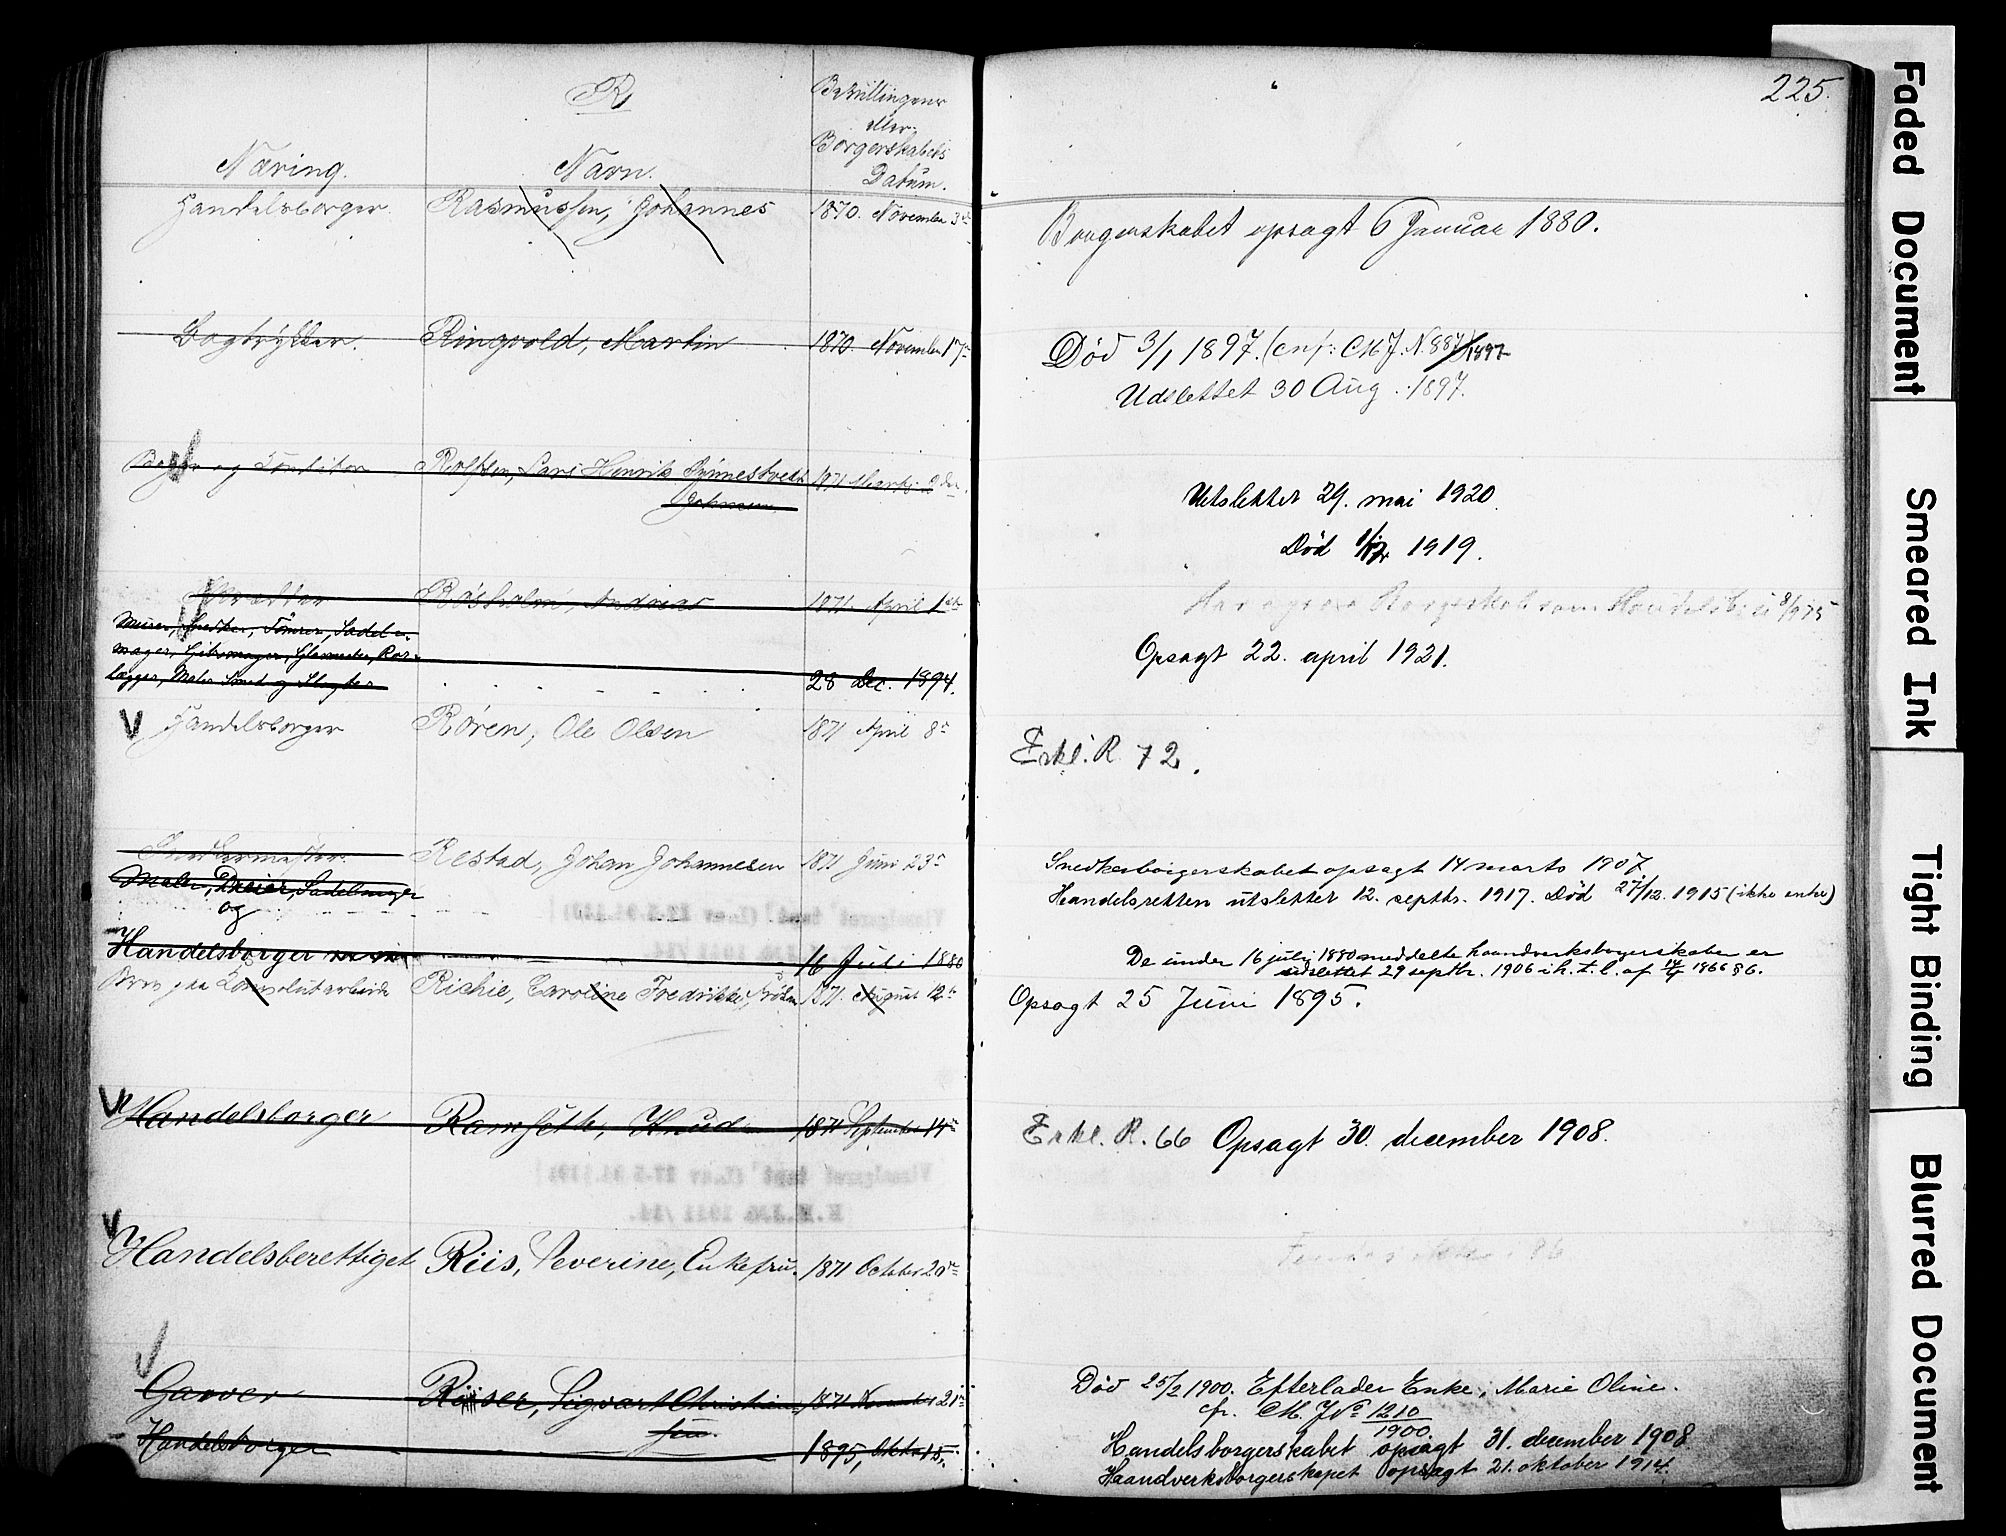 R
Næring.
Navn.
Bevillingens
eller
Borgerskabets
Datum.
225.
Handelsborger. Rasmussen, Johannes 1870. November 3
Borgerskabet opsagt 6 Januar 1880.
Bogtrykker. Ringvold, Martin 1870. November 17
Død 3/1 1897. (cnf: M. J. N. 887/1897
Udslettet 30 Aug. 1897.
Bager og Konditor Rolfsen, Lars Henrik 1871 Marts 2den
Utslettet 29. mai 1920.
Død 1919.
Røsholm, Andreas 1871. April 1ste
Borgerskab som
Murer, Snedker, Tømrer, Sadel-
mager, Gjørtmager, Glarmester, Reb-
lægger, Maler Smed og Slagter 28 Dec. 1894.
Opsagt 22. april 1921.
V Handelsborger Røren, Ole Olsen 1871 April 8
Erkl. R 72.
Snedkermester. Restad, Johan Johannesen 1871 Juni 23
Maler, Dreier, Sadelmager
og
Snedkerborgerskabet opsagt 14 marts 1907.
Handelsretten utslettet 12. septbr. 1917. Død 27/12. 1915 (ikke enke)
Handelsborger 16 Juli 1880
De under 16 juli 1880 meddelte haandverksborgerskaber er
udslettet 29 septbr. 1906 i h. t. l. af 14/4 1866 § 6.
Richie, Caroline Fredrikke, frøken 1871. August 12te
Opsagt 25 Juni 1895.
V Handelsborger Ramseth, Knud 1871 September 14
Erkl. R. 66 Opsagt 30. december 1908.
V Handelsberettiget Riis, Severine, Enkefru. 1871 October 20
V Garver Riiser, Sigvart Christian- 1871 November 21
sen.
Død 25/2 1900. Efterlader Enke, Marie Oline.
cfr. M. J No 1210
1900.
Handelsborger 1895, Oktob. 15.
Handelsborgerskabet opsagt 31. december 1908
Haandverksborgerskapet opsagt 21. oktober 1914.
Faded Document
Smeared Ink
Tight Binding
Blurred Document